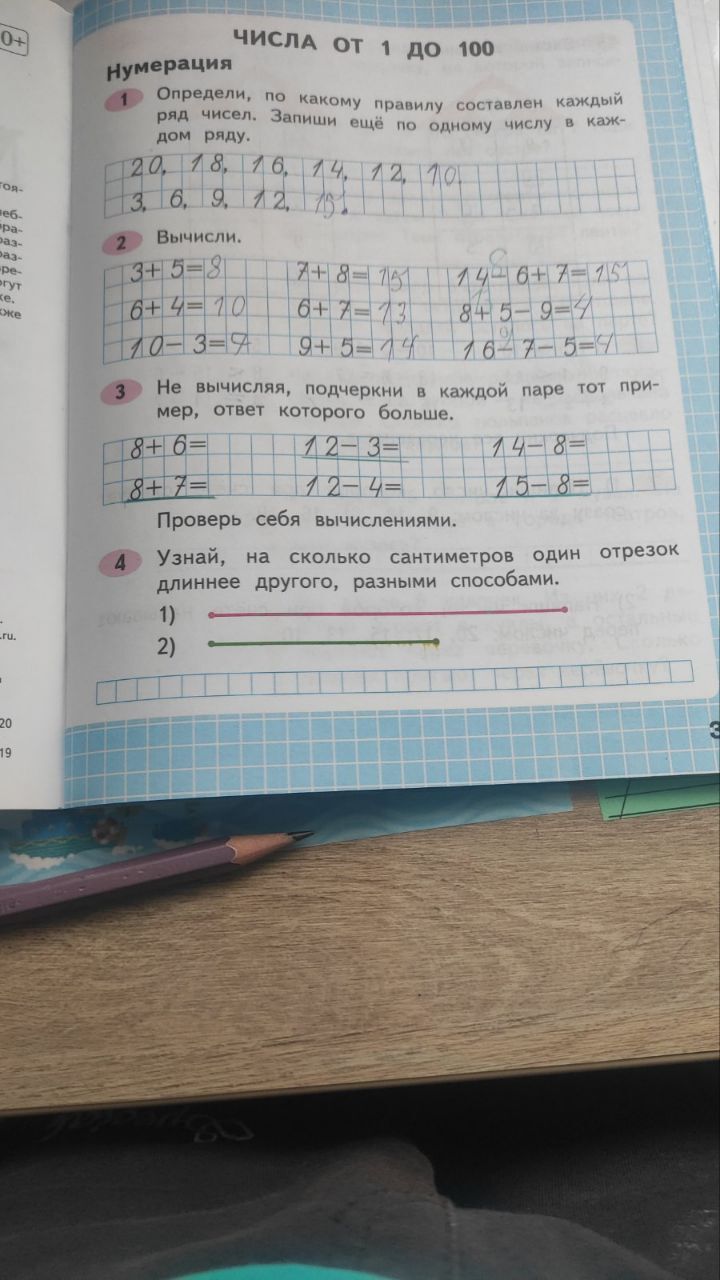 0+
ЧИСЛА ОТ 1 ДО 100
Нумерация
1 Определи, по какому правилу составлен каждый
ряд чисел. Запиши ещё по одному числу в каж-
дом ряду.
20, 18, 16, 14, 12, 10.
3, 6, 9, 12, 15.
2 Вычисли.
3+5=8 7+8=15 14-6+7=15
6+4=10 6+7=13 8+5-9=4
10-3=7 9+5=14 16-7-5=4
3 Не вычисляя, подчеркни в каждой паре тот при-
мер, ответ которого больше.
8+6= 12-3= 14-8=
8+7= 12-4= 15-8=
Проверь себя вычислениями.
4 Узнай, на сколько сантиметров один отрезок
длиннее другого, разными способами.
1)
2)